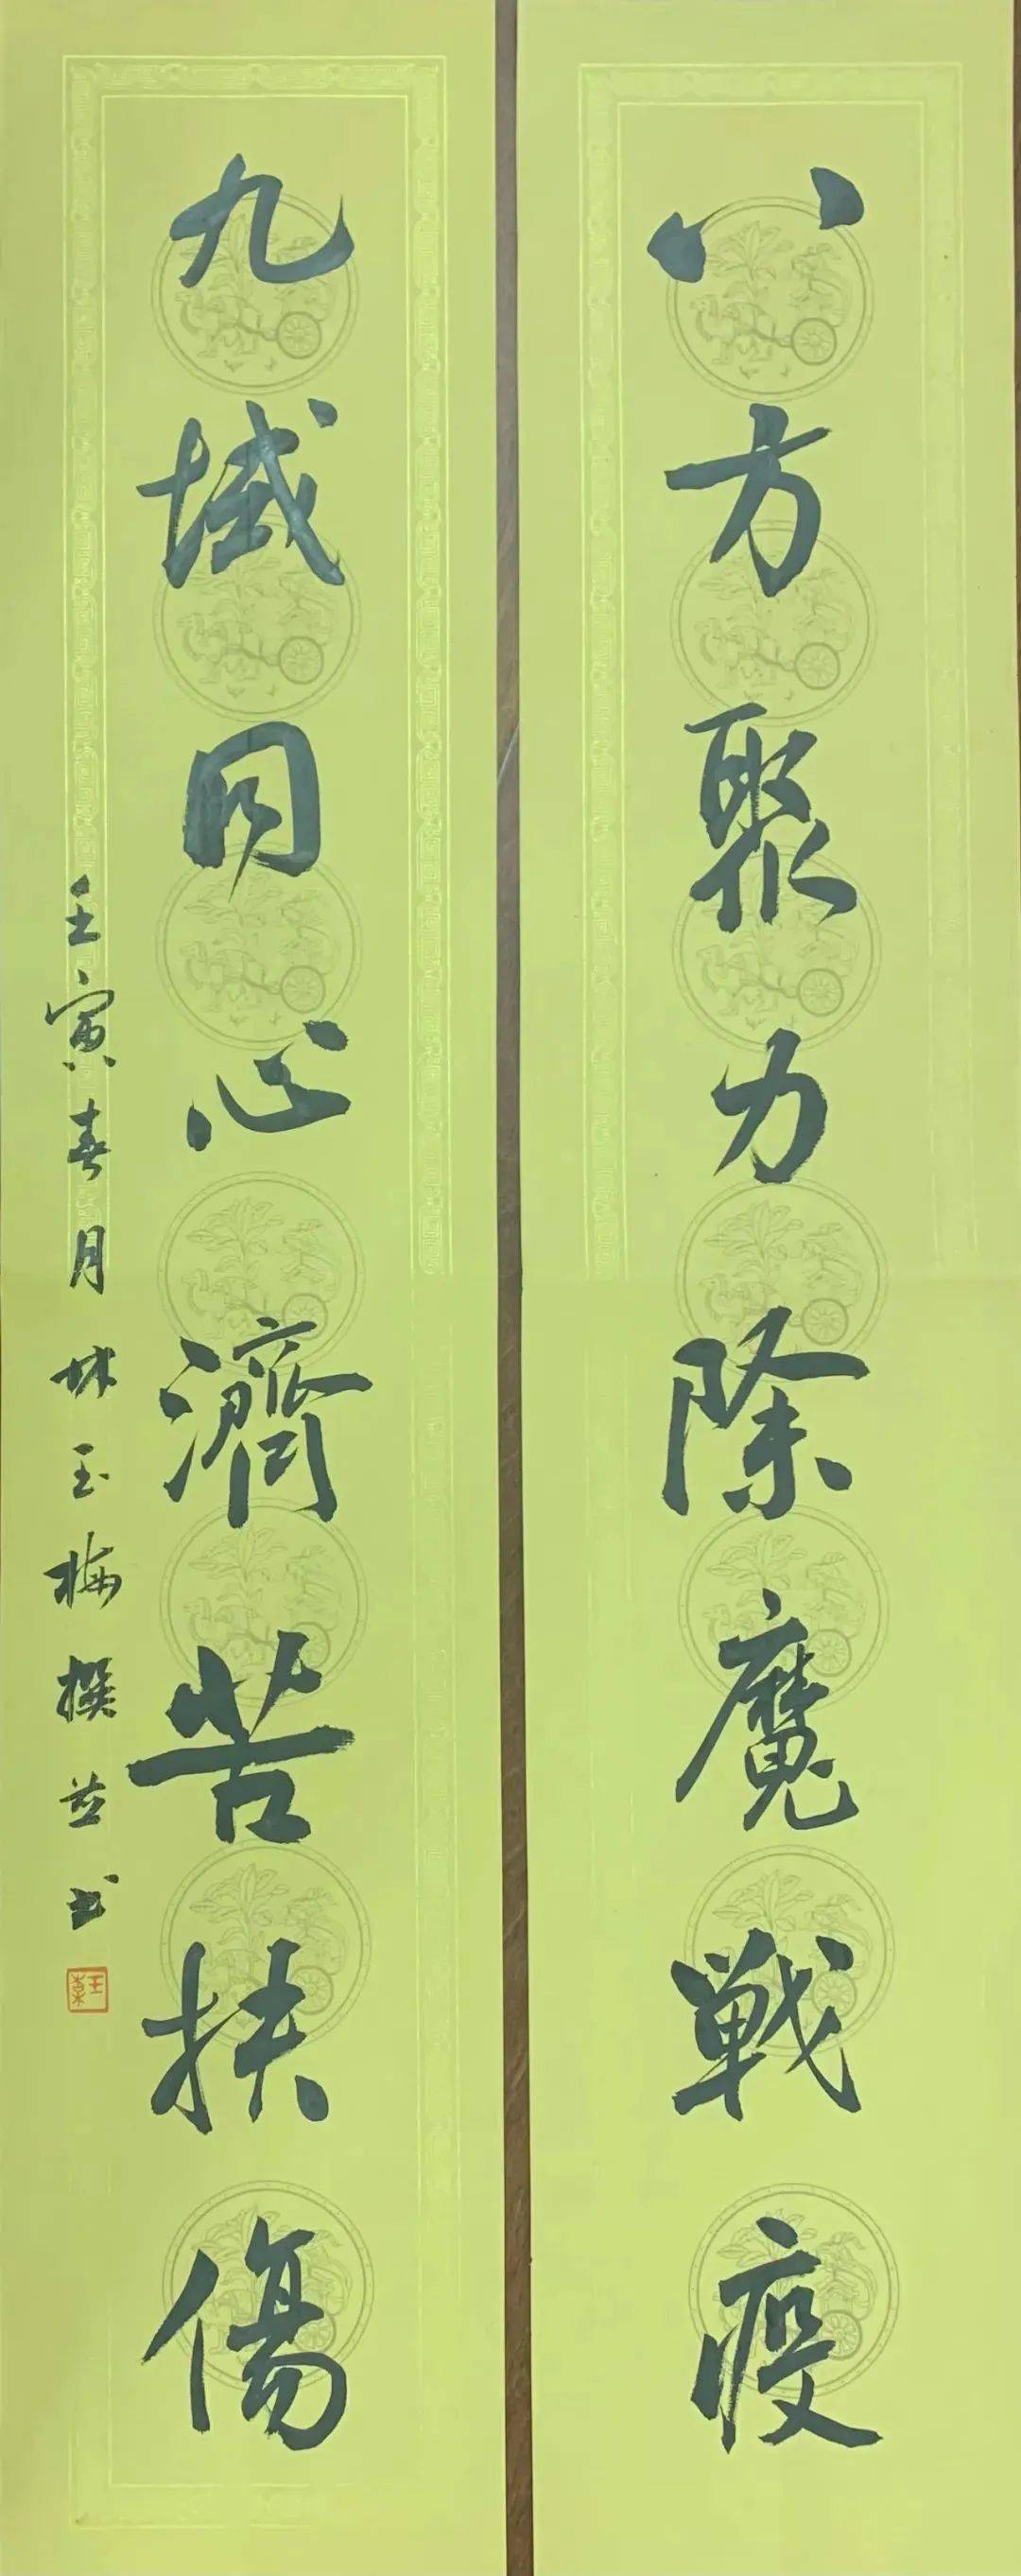 八方聚力除魔戰疫
九域同心濟苦扶傷
壬寅春月林玉梅撰并书